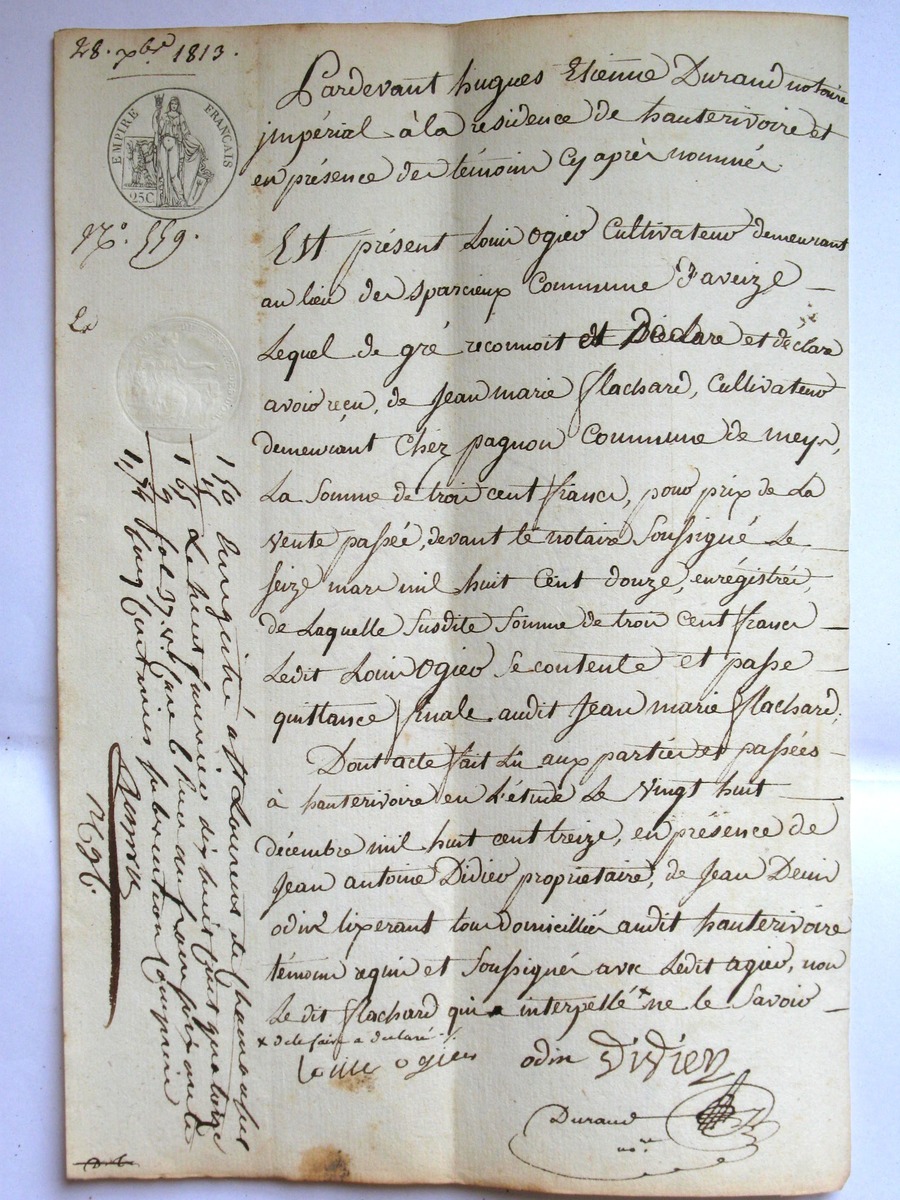 28. xbre 1813.
EMPIRE FRANÇAIS
25C
No. 559.
Pardevant hugues Etienne Durand notaire
impérial à la residence de hauterivoire et
en présence des témoins Cy après nommés
Est présent Louis Ogier Cultivateur demeurant
au lieu de sparcieux Commune d'aveize
Lequel de gré reconnoit et Déclare et déclare
avoir reçu, de Jean marie flachard, Cultivateur
demeurant Chez pagnon Commune de meys,
La Somme de trois cent francs, pour prix de La
vente passée, devant le notaire Soussigné Le
seize mars mil huit Cent douze, enrégistrée,
de Laquelle Susdite Somme de trois cent francs
Ledit Louis Ogier Se contente et passe
quittance finale audit Jean marie flachard,
Dont acte fait Lu aux parties et passées
à hauterivoire en L'étude Le vingt huit
décembre mil huit cent treize, en présence de
Jean antoine Didier proprietaire, de Jean Denis
odin tixerant tous domiciliés audit hauterivoire
témoins requis et Soussignés avec Ledit ogier, non
Ledit flachard qui a interpellé x ne le Savoir
x de le faire a declaré
Louis ogier
odin Didier
Durand
nore
1 50 Enregistré à St Laurent de Chamousset
15 Le huit janvier dix huit cent quatorze
1 65 fol. 37. vo. Case 6 Reçu un franc soixante
9
1,74 cinq centimes subvention Comprise